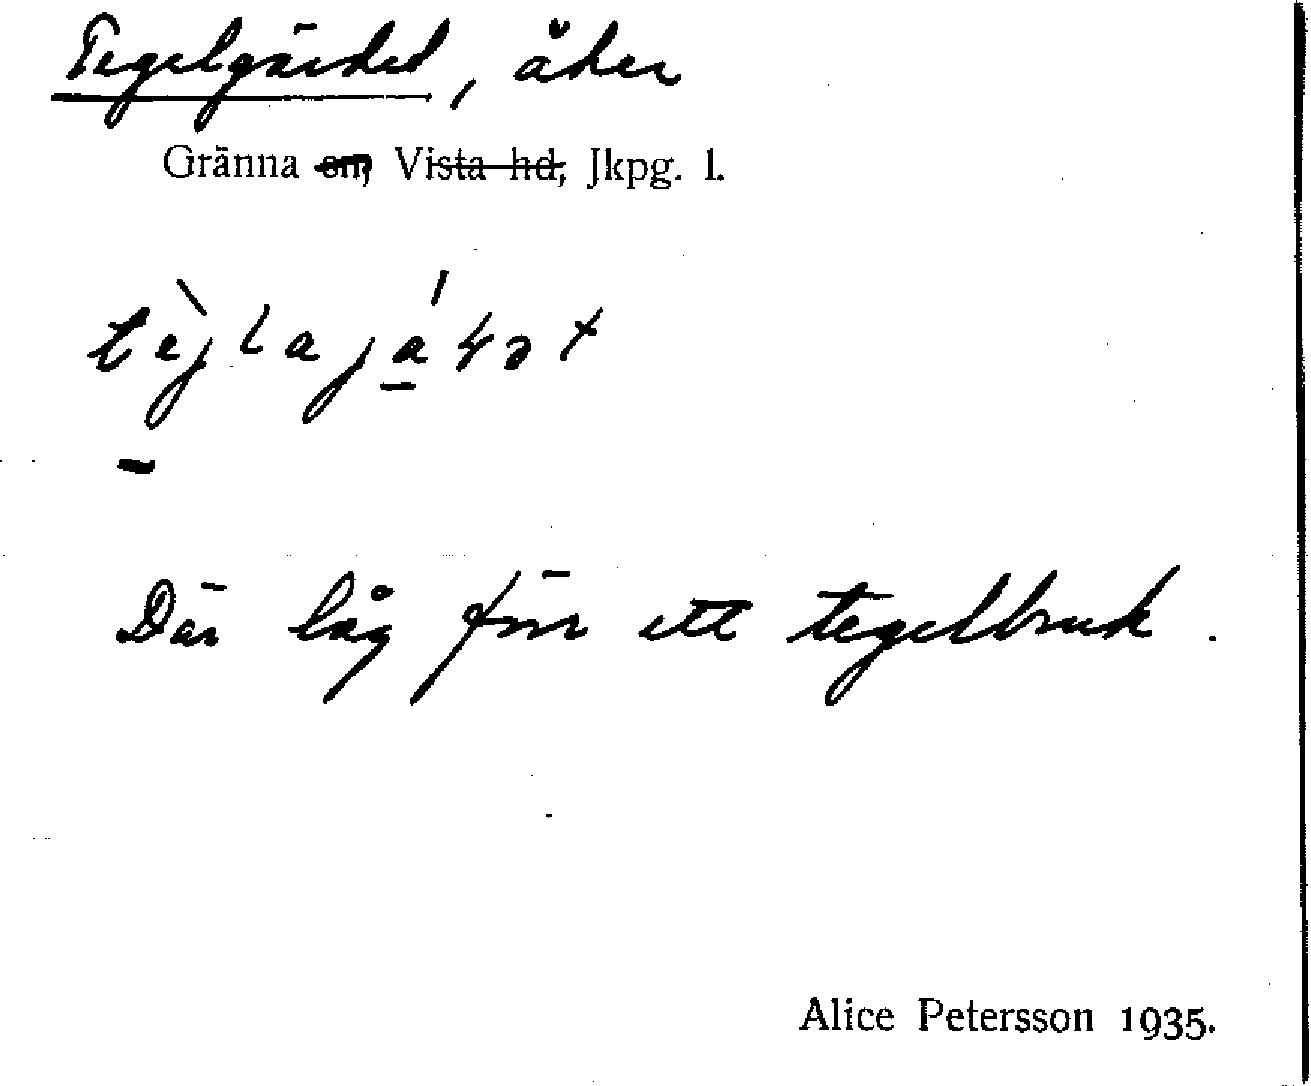 Tegelgärdet, åker
Gränna sn, Vista hd, Jkpg. l.
Där låg förr ett tegelbruk.
Alice Petersson 1935.